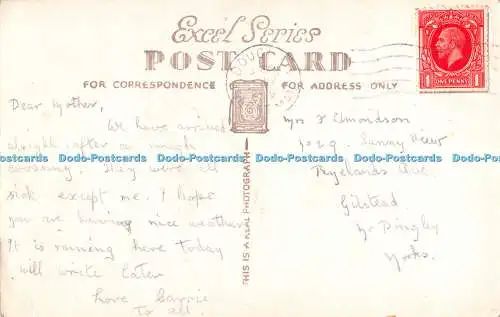 Excel Series
POST CARD
FOR CORRESPONDENCE
FOR ADDRESS ONLY
THIS IS A REAL PHOTOGRAPH
ONE PENNY
1 1
Dear Mother,
We have arrived
alright after a rough
crossing. They were all
sick except me. I hope
you are having nice weather
It is raining here today
will write later
Love Carrie
To all.
Mrs F Edmondson
Sunny View
Ryelands Ave.
Gilstead
Nr Bingley
Yorks.
Dodo-Postcards Dodo-Postcards Dodo-Postcards Dodo-Postcards Dodo-Postcards Dodo-Postcards